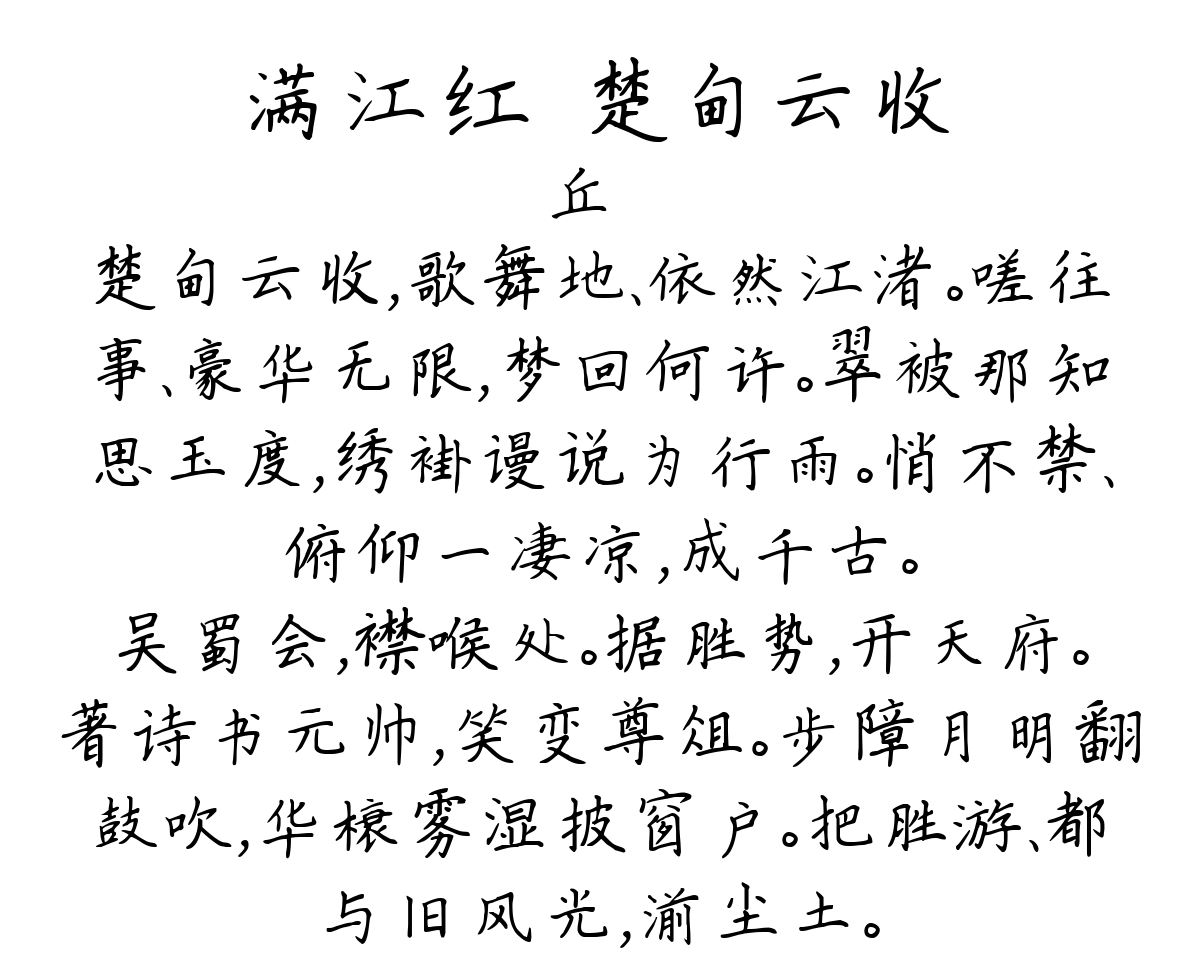 满江红 楚甸云收
丘
楚甸云收,歌舞地、依然江渚。嗟往
事、豪华无限,梦回何许。翠被那知
思玉度,绣褂谩说为行雨。悄不禁、
俯仰一凄凉,成千古。
吴蜀会,襟喉处。据胜势,开天府。
著诗书元帅,笑变尊俎。步障月明翻
鼓吹,华榱雾湿披窗户。把胜游、都
与旧风光,湔尘土。